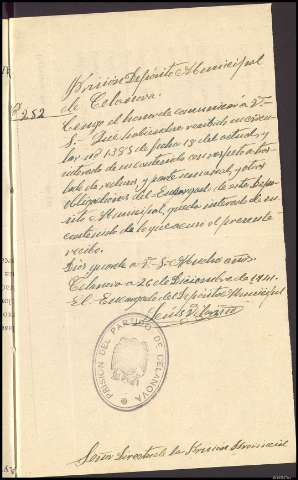 Prisión Depósito Municipal
de Celanova.
Nº 252
Tengo el honor de comunicar a V.
S. Que habiendo recibido su circu-
lar nº 1383 de fecha 18 del actual, y
enterado de su contenido con respecto a tras-
lado de reclusos, y parte mensual, y otras
obligaciones del Encargado de este Depó-
sito Municipal, queda enterado de su
contenido de lo que acuso el presente
recibo.
Dios guarde a V. S. Muchos años.
Celanova a 26 de Diciembre de 1941.
El Encargado del Depósito Municipal
Luis
PRISIÓN DEL PARTIDO DE CELANOVA
Señor Director de la Prision Provincial